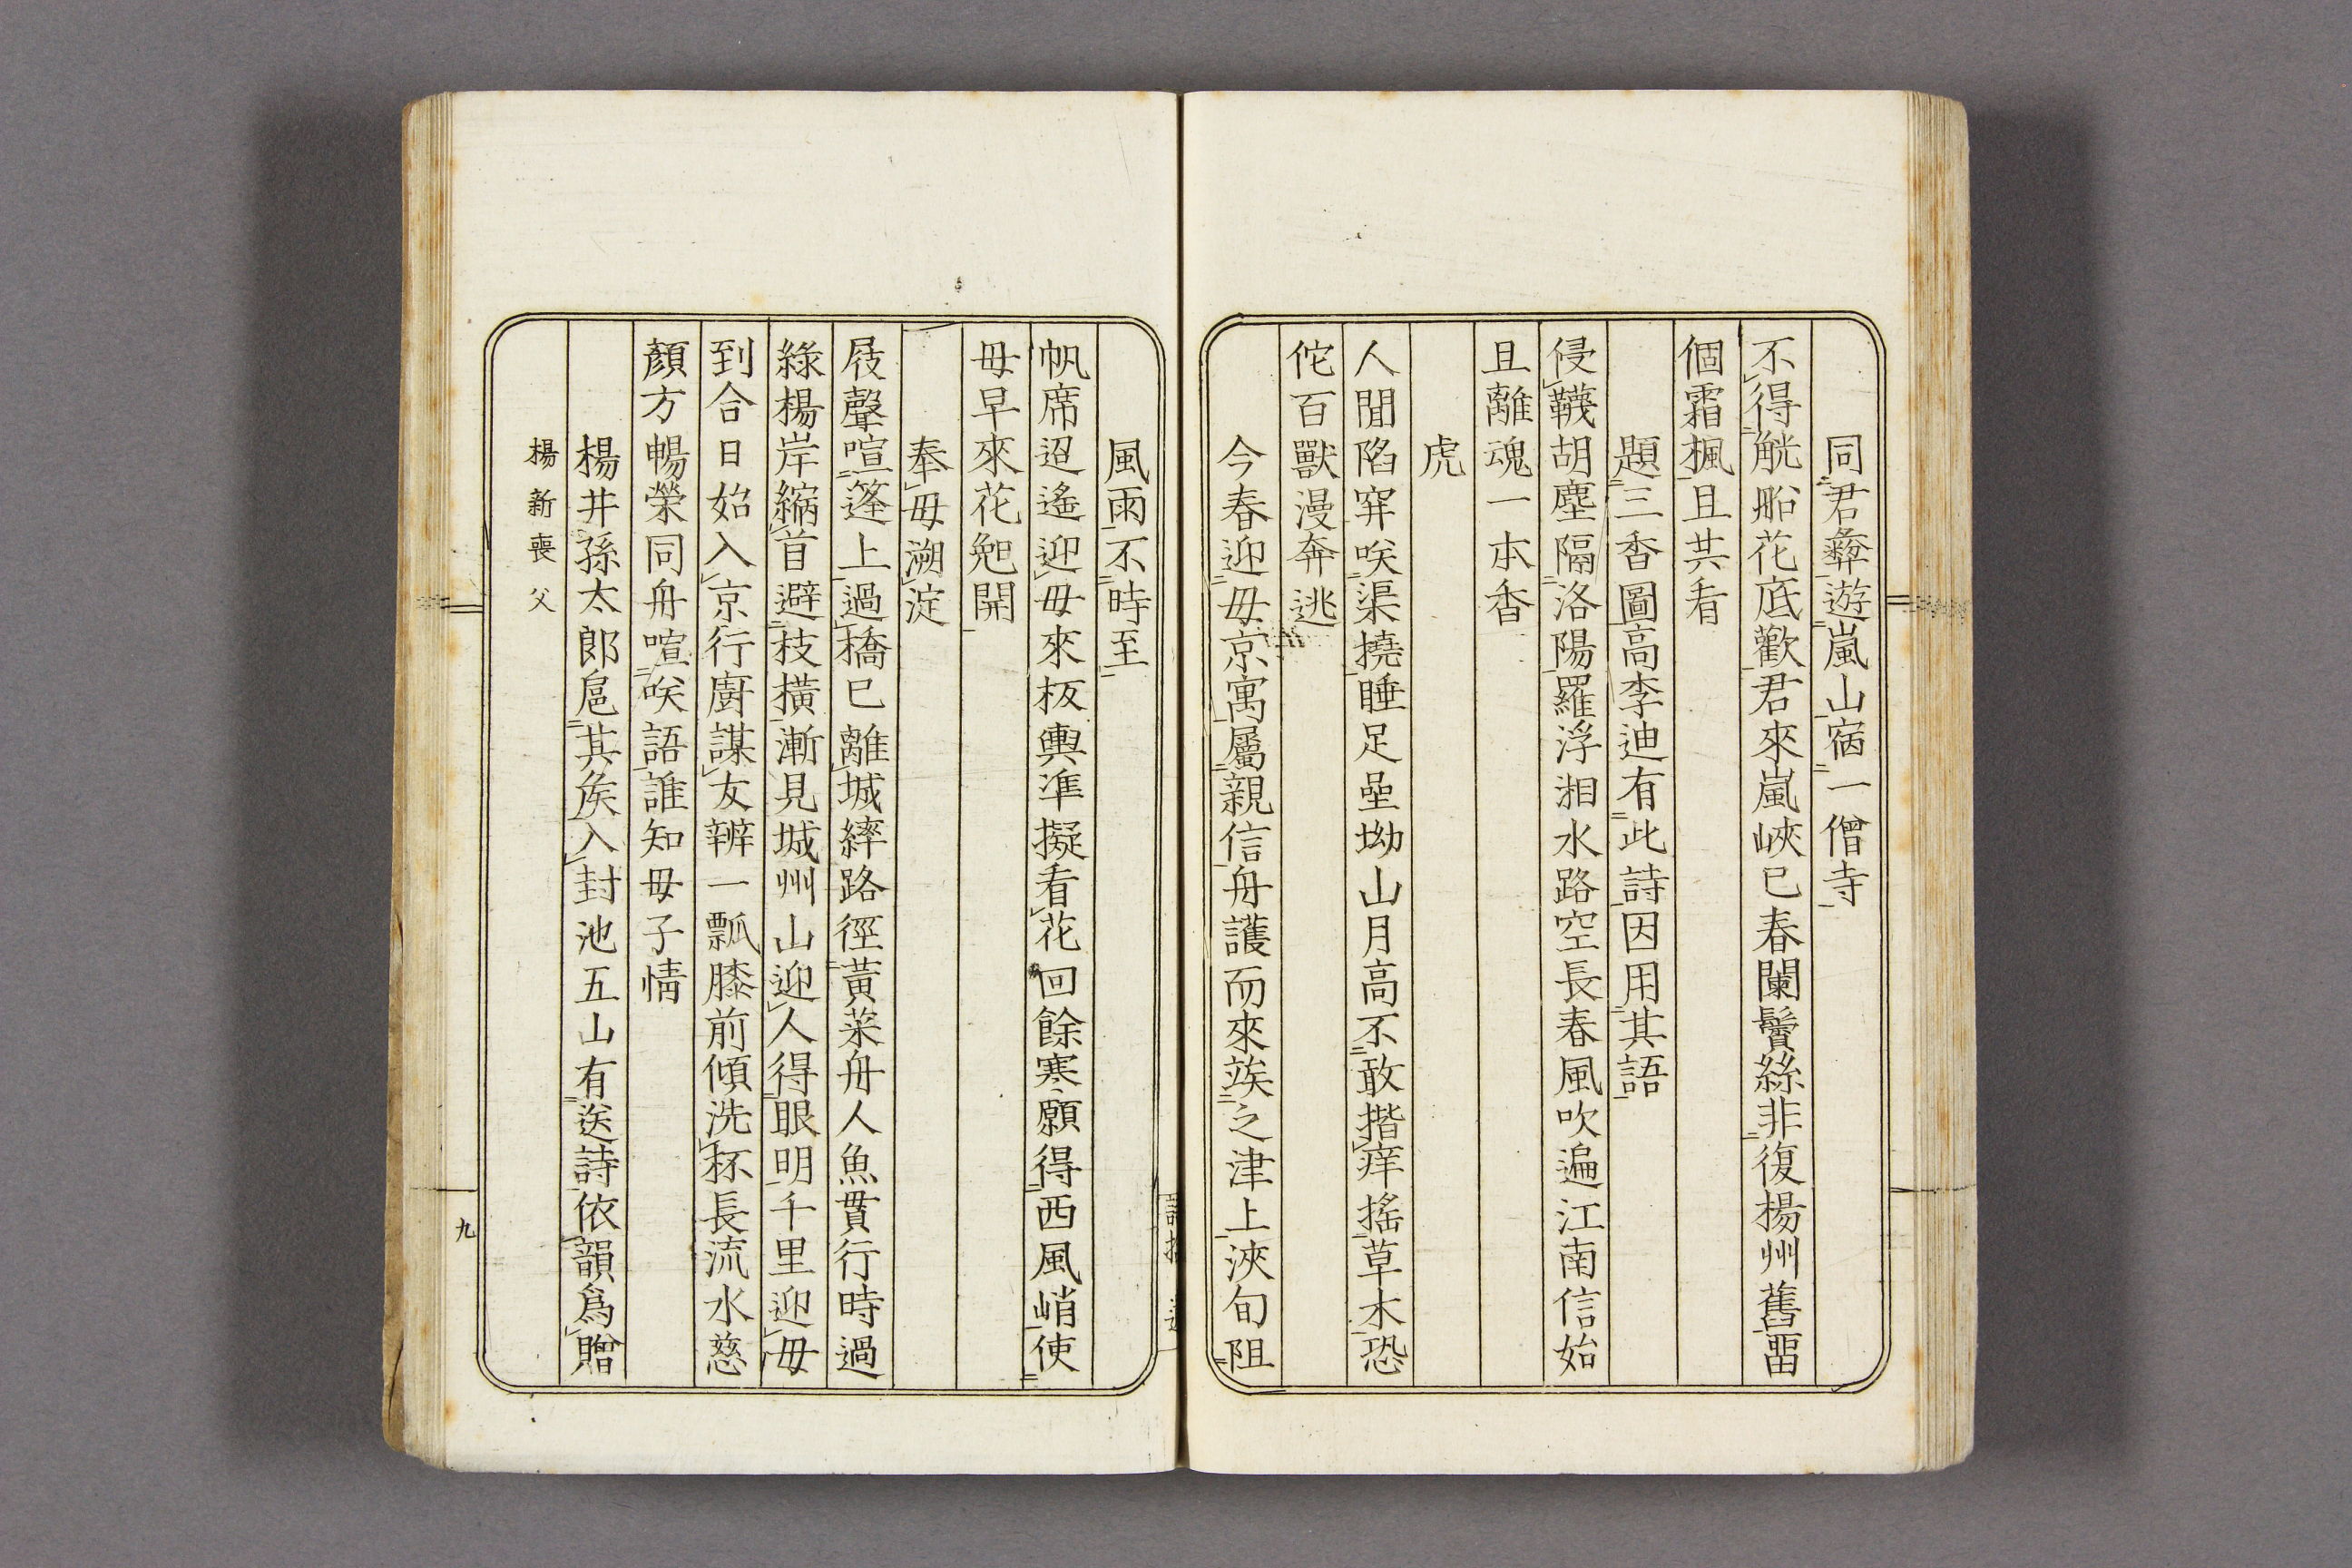 同君彜遊嵐山宿一僧寺
不得觥船花底歡君來嵐峽已春闌鬢絲非復楊州舊畱
個霜楓且共看
題三香圖高李迪有此詩因用其語
侵韈胡塵隔洛陽羅浮湘水路空長春風吹遍江南信始
且離魂一本香
虎
人間陷穽咲渠撓睡足壘坳山月高不敢揩痒搖草木恐
佗百獸漫奔逃
今春迎母京寓屬親信舟護而來竢之津上浹旬阻
風雨不時至
帆席迢遙迎母來板輿準擬看花回餘寒願得西風峭使
母早來花兜開
奉母溯淀
屐聲喧篷上過橋已離城繂路徑黃菜舟人魚貫行時過
綠楊岸縮首避枝橫漸見城州山迎人得眼明千里迎母
到合日始入京行廚謀友辨一瓢膝前傾洗杯長流水慈
顏方暢榮同舟喧咲語誰知母子情
楊井孫太郎扈其矦入封池五山有送詩依韻爲贈
楊新喪父
九